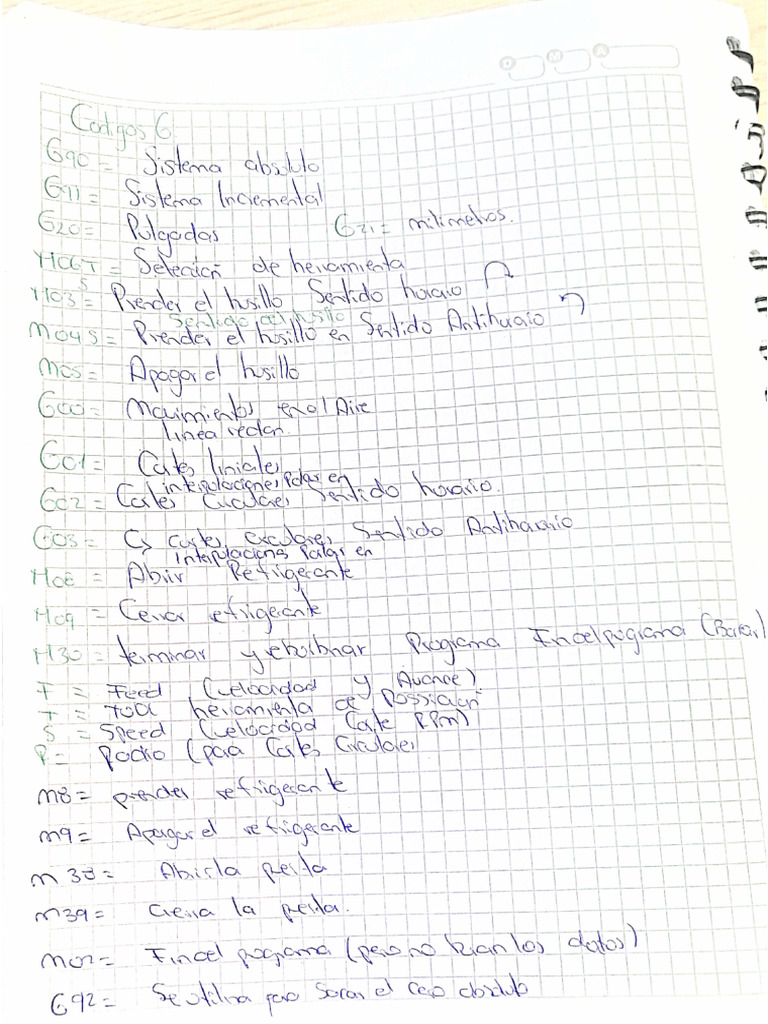 Codigos G
G90 = Sistema absoluto
G91 = Sistema Incremental
G20 = Pulgadas G21 = milimetros.
M06T = Selección de herramienta
M03 S = Prender el husillo Sentido horario
Sentido del husillo
M04 S = Prender el husillo en Sentido Antihorario
M05 = Apagar el husillo
G00 = Movimientos en el Aire
linea recta
G01 = Cortes liniales
interpolaciones Polar en
G02 = Cortes Circulares Sentido horario.
G03 = Cortes circulares Sentido Antihorario
interpolaciones Polar en
M08 = Abrir Refrigerante
M09 = Cerrar refrigerante
M30 = terminar y Programa Fin del programa (Borar)
F = Feed (velocidad y Avance)
T = Tool herramienta de Possición
S = Speed (velocidad Corte RPM)
R = Radio (para Cortes Circulares
M8 = prender refrigerante
M9 = Apagar el refrigerante
M38 = Abir la perta
M39 = Cierra la perta.
M02 = Fin del programa (pero no los datos)
G92 = Se utiliza para Sacar el Cero absoluto